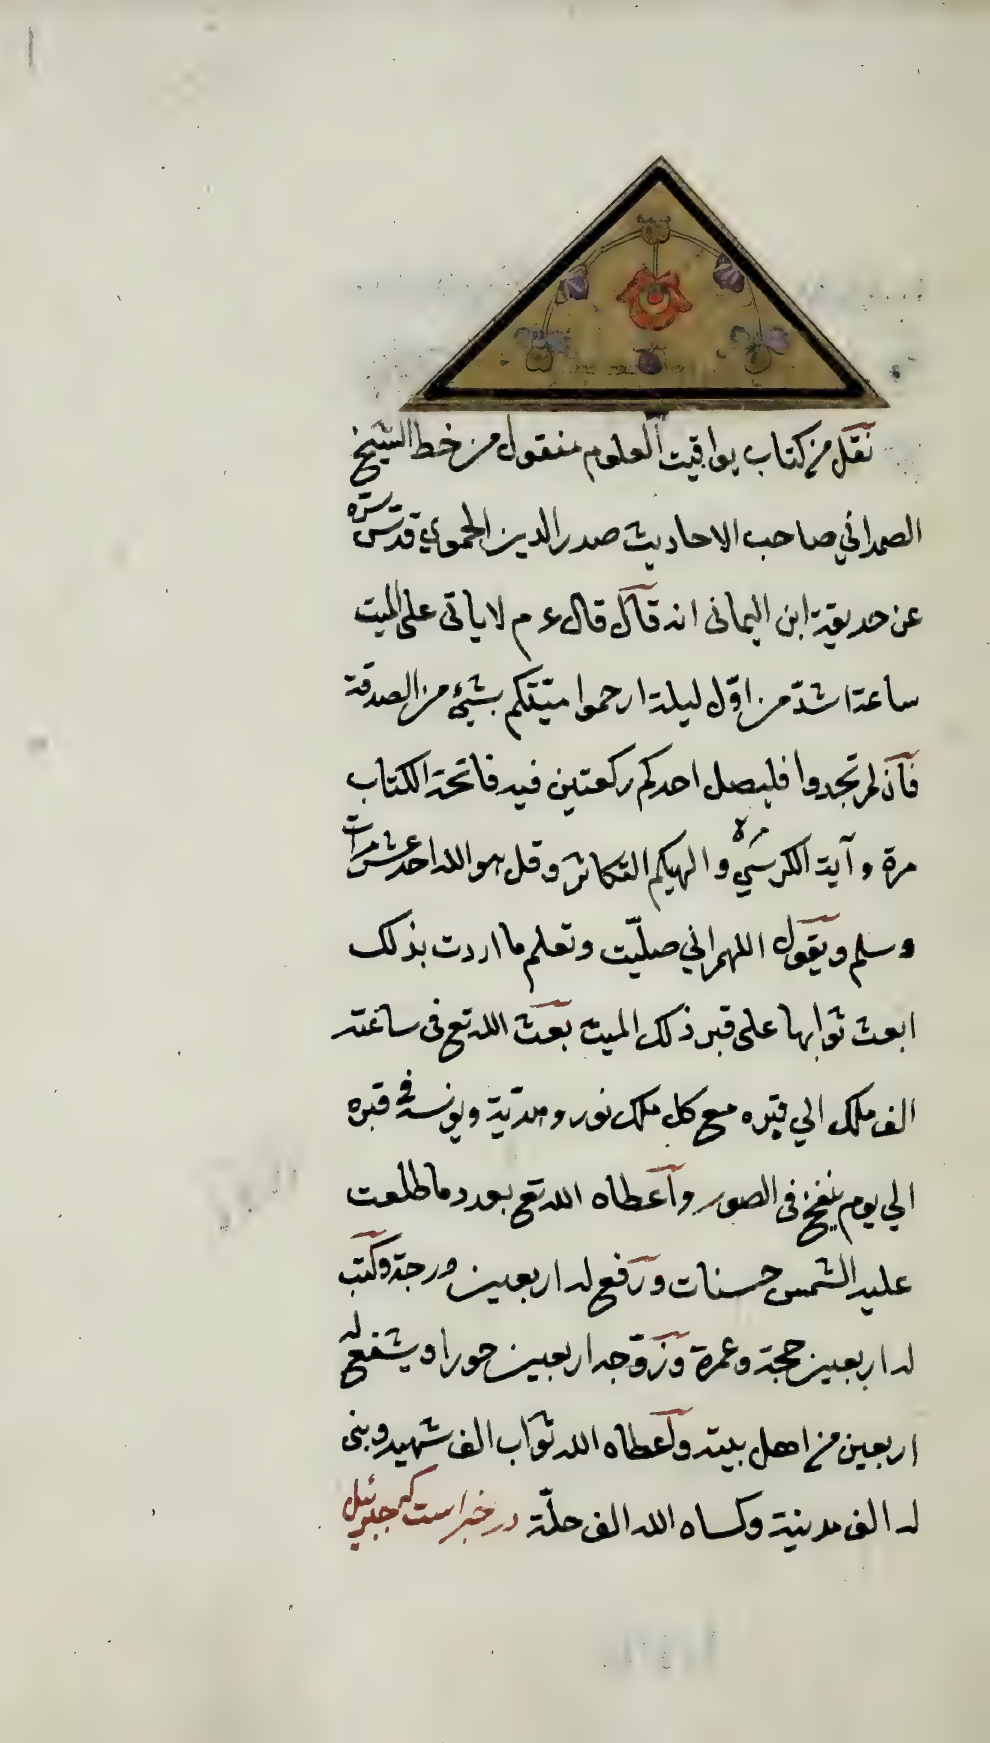 نقل من كتاب يواقيت العلوم منقول من خط الشيخ
الصمداني صاحب الاحاديث صدر الدين الحموي قدس سره
عن حديقة ابن اليمانى انه قال قال ء م لا ياتى على الميت
ساعة اشدّ من اوّل ليلة ارحموا ميتكم بشئ من الصدقة
فان لم تجدوا فليصل احدكم ركعتين فيه فاتحة الكتاب
مرة و آية الكرسي مرة و الهيكم التكاثر و قل هو الله احد عشر مرات
و سلم و يقول اللهم اني صليّت و تعلم ما اردت بذلك
ابعث ثوابها على قبر ذلك الميت بعث الله تع فى ساعته
الف ملك الي قبره مع كل ملك نور و هديّة و يونسه في قبره
الي يوم ينفخ فى الصور و اعطاه الله تع بعدد ما طلعت
عليه الشمس حسنات و رفع له اربعين درجة و كتب
له اربعين حجة و عمرة و زوّجه اربعين حورا و يشفع له
اربعين من اهل بيته و اعطاه الله ثواب الف شهيد و بنى
له الف مدينة و كساه الله الف حلّة در خبر است كه جبرئيل